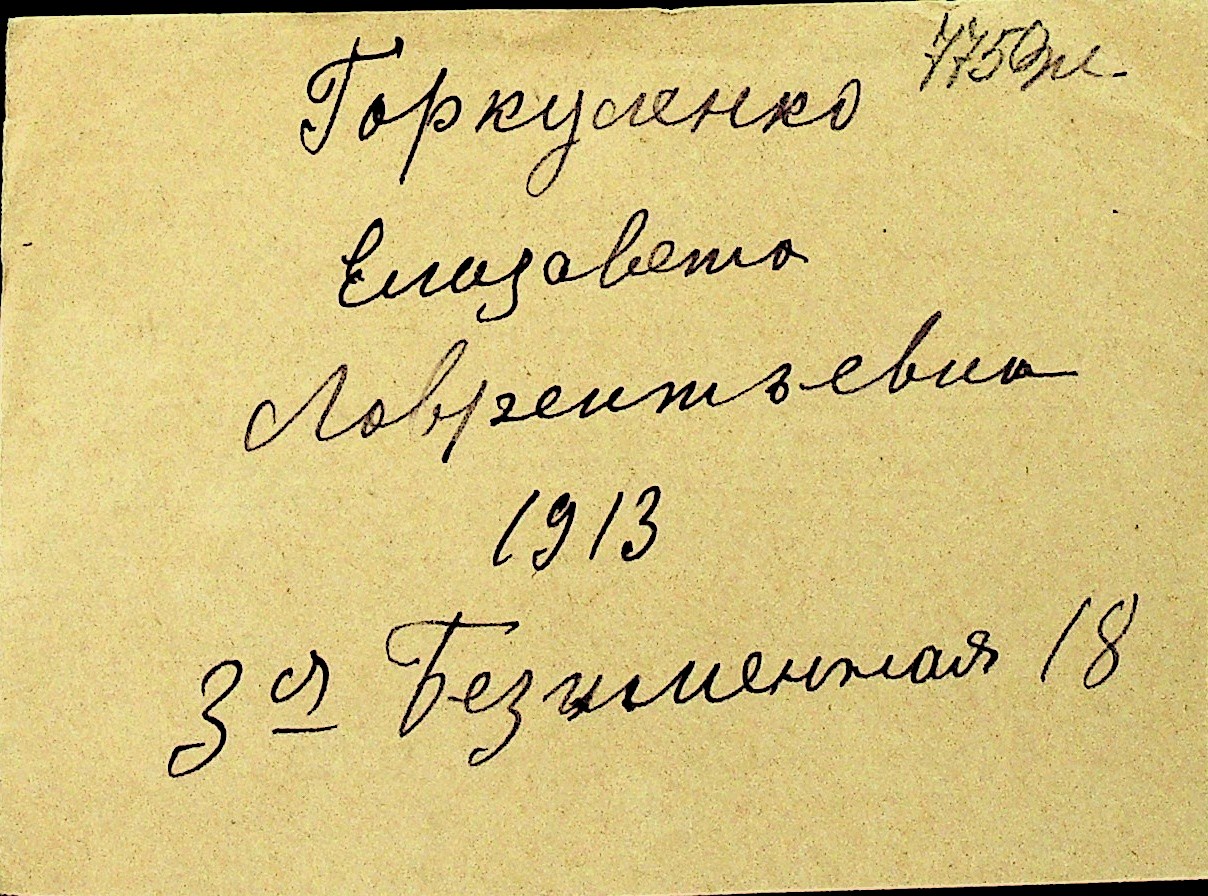 Горкуленко
Елизавета
Лаврентьевна
1913
3 ая Безыменная 18